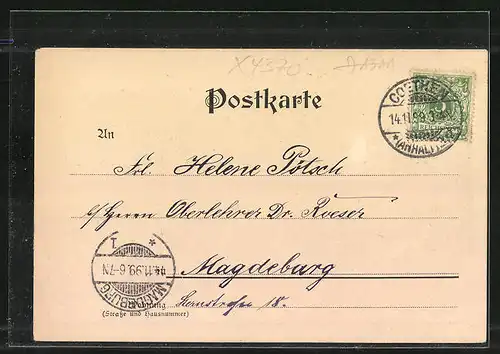 X4370
Postkarte
COETHEN
14.11.99
*(ANHALT)
An
Frl. Helene Pötsch
Herrn Oberlehrer Dr. Roeser
Magdeburg
* 1
14.11.99. 6-7N
MAGDEBURG
Wohnung
(Straße und Hausnummer)
18.